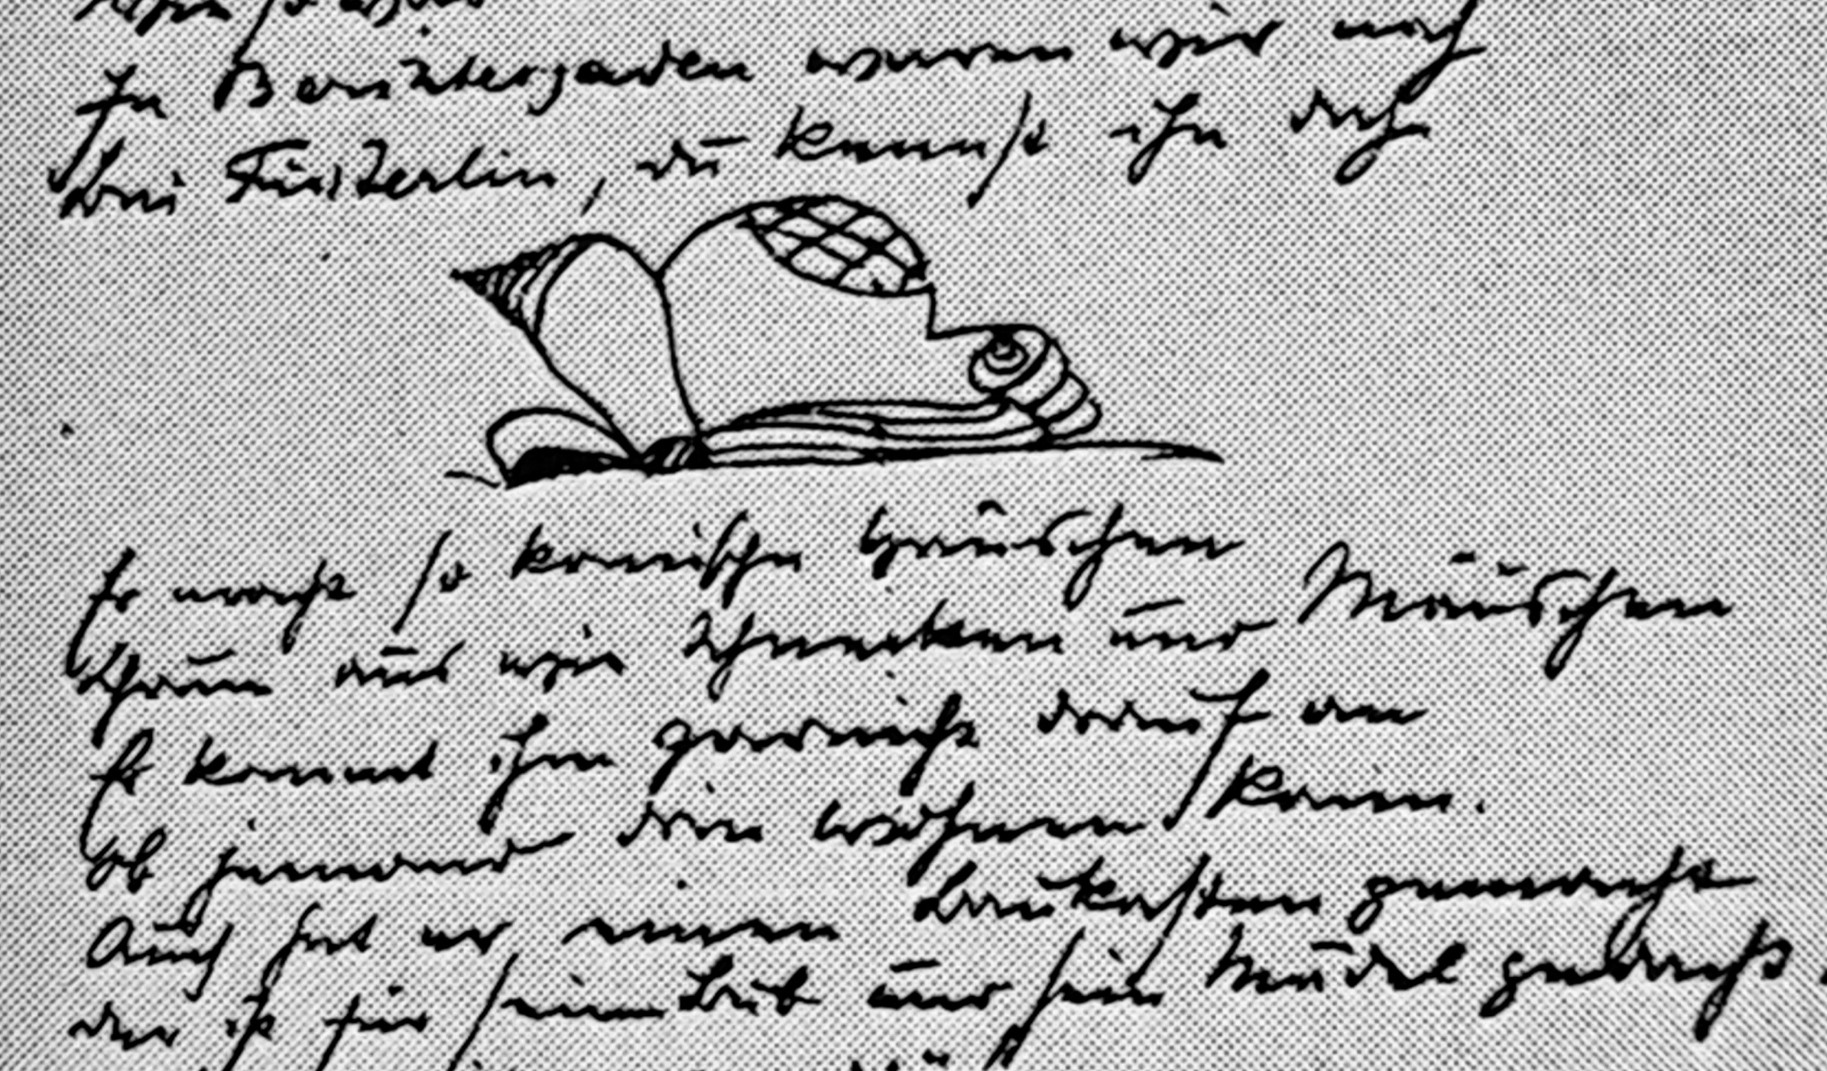 In Berchtesgaden waren wir auch
bei Finsterlin, du kennst ihn doch
Er macht so komische Häuschen
Schaun aus wie Schnecken und Mäuschen
Es kommt ihm garnicht drauf an
Ob jemand drin wohnen kann.
Auch hat er einen Baukasten gemacht
der ist für seinen Bub und sein Mädel gedacht.